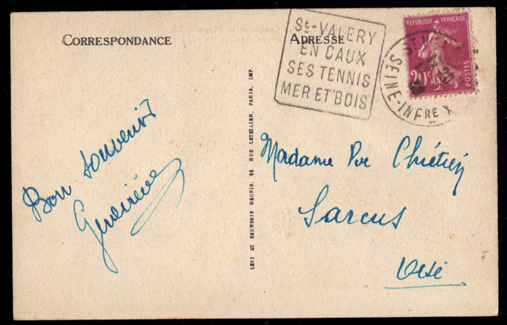 CORRESPONDANCE
ADRESSE
St-VALERY
EN CAUX
SES TENNIS
MER ET BOIS
REPUBLIQUE FRANÇAISE
20c
POSTES
SEINE-INFRE
Bon souvenir
Geneviève
Madame Vve Chrétien
Sarcus
Oise
LÉVY ET NEURDEIN RÉUNIS, 44 RUE LETELLIER, PARIS, IMP.